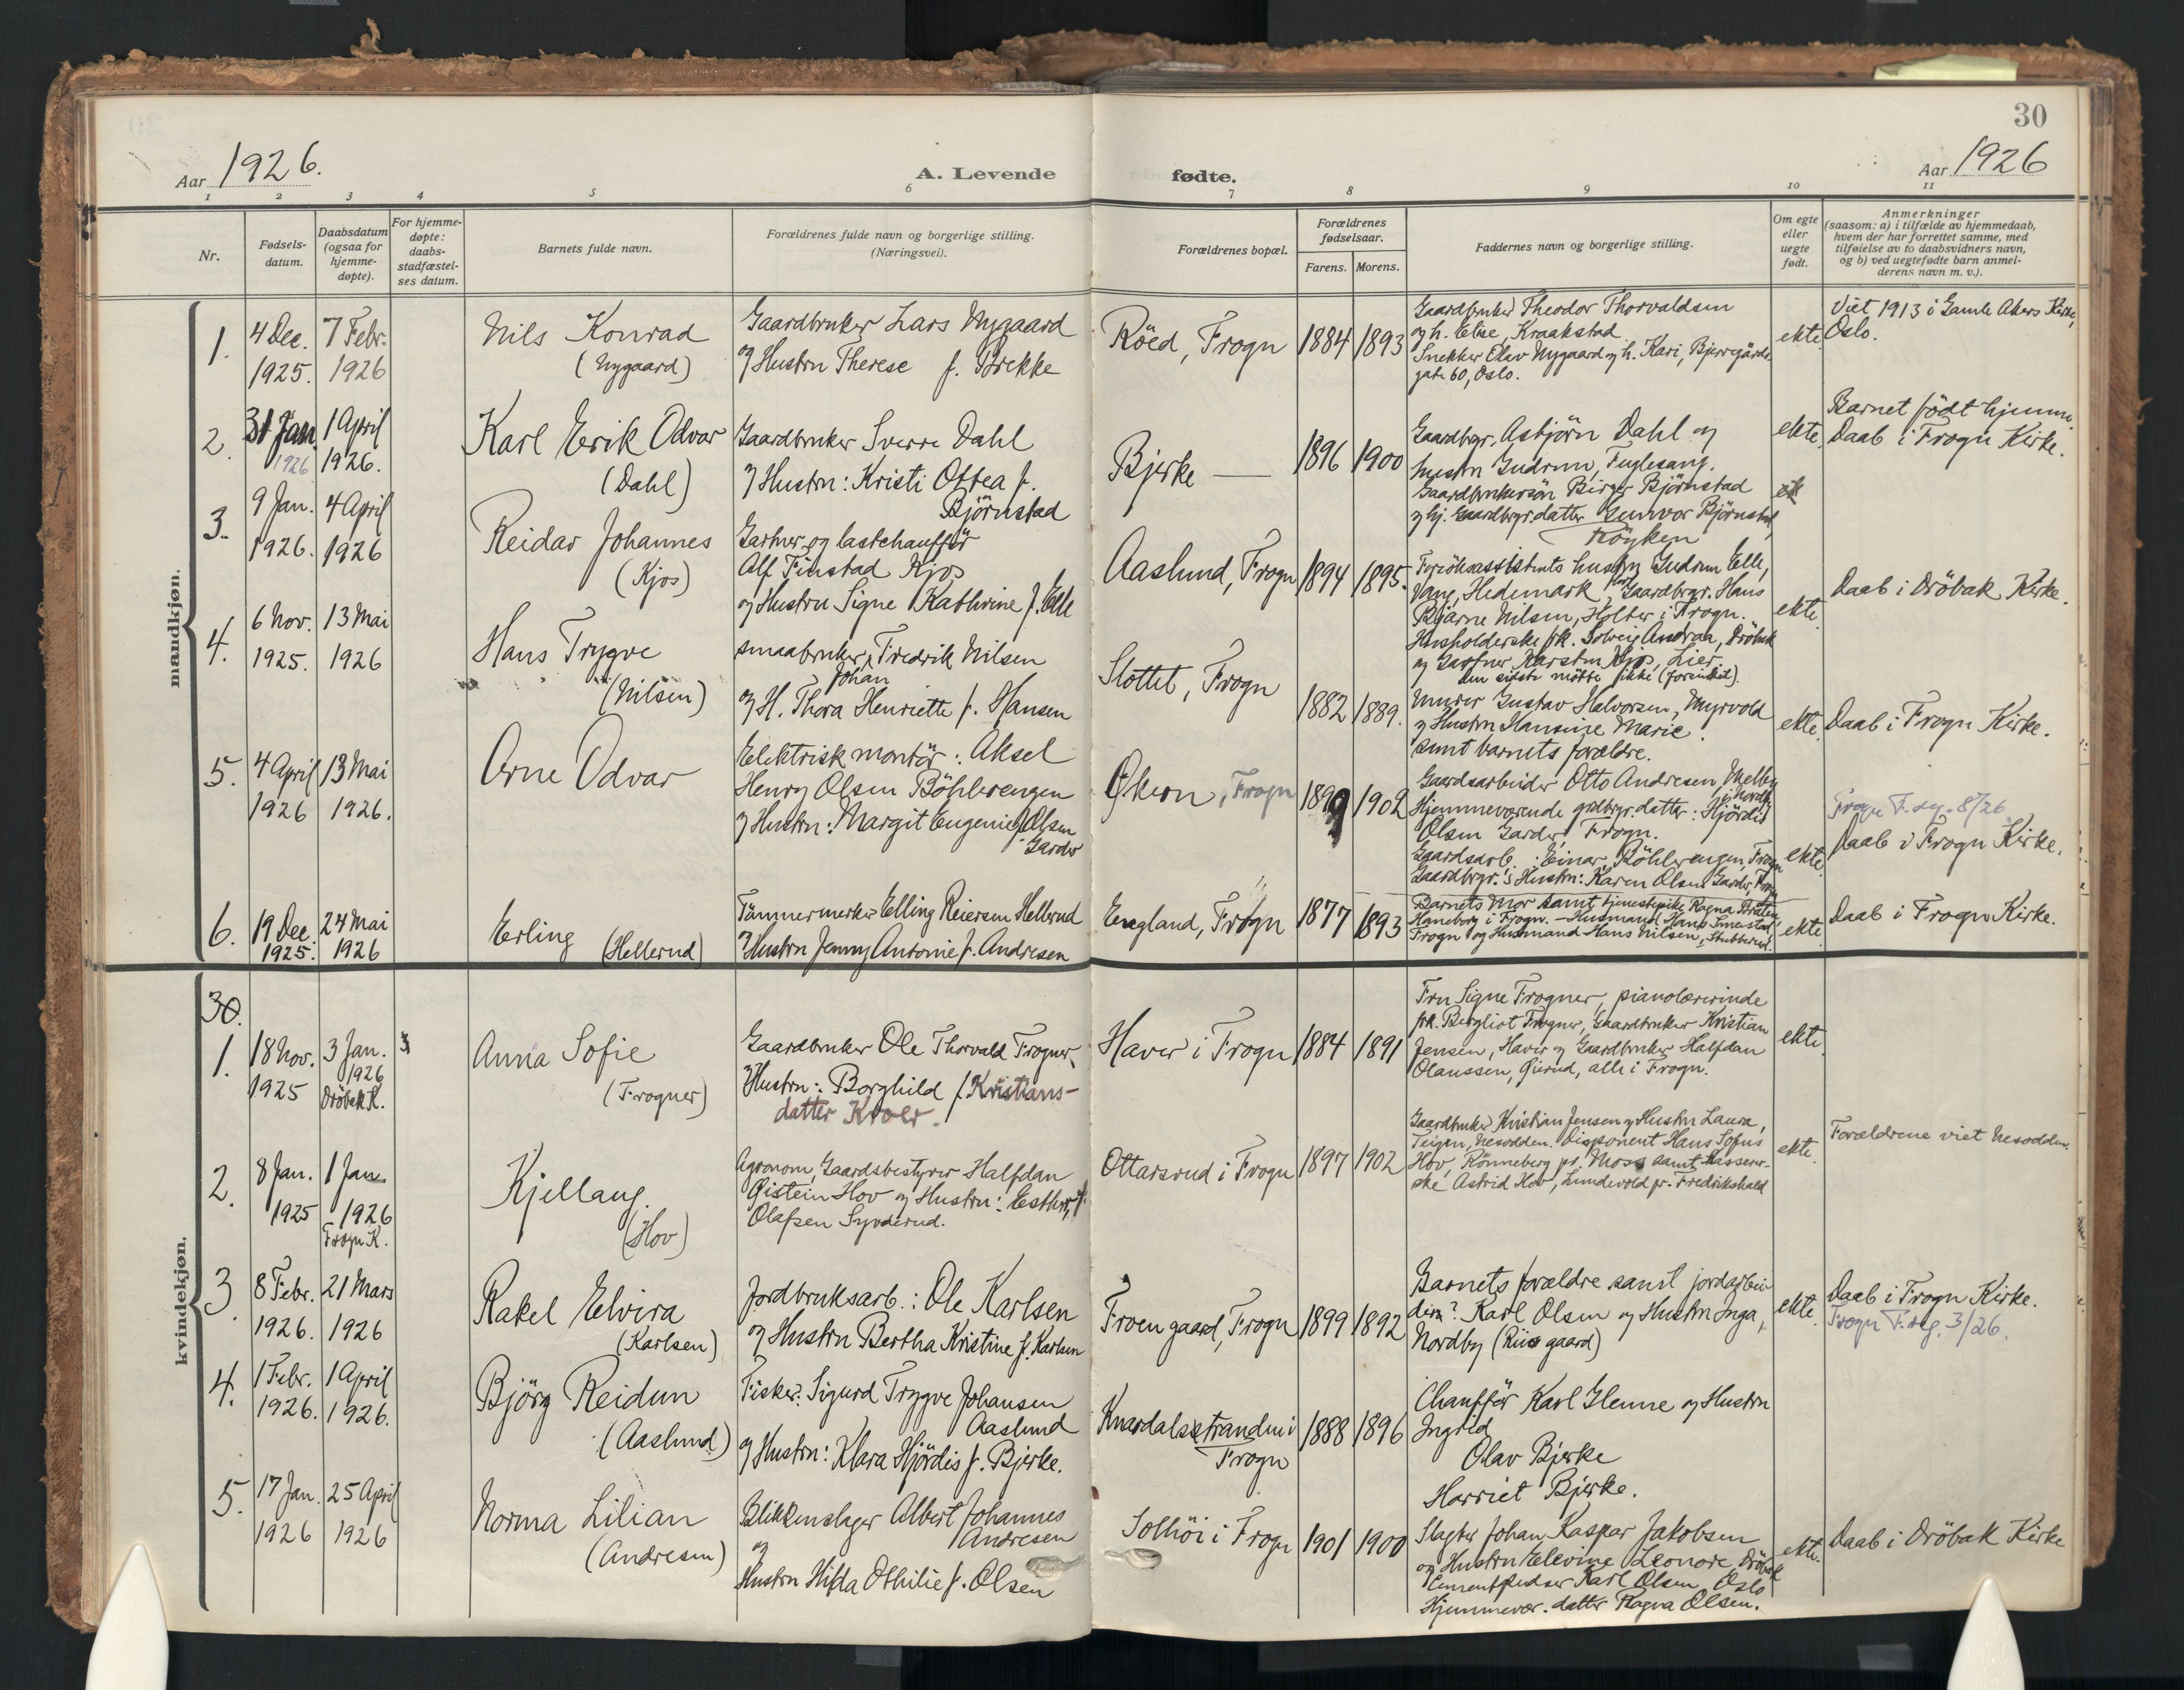 30
Aar 1926.
A. Levende
fødte.
Aar 1926
1 2 3 4 5 6 7 8 9 10 11
Nr.
Fødsels-
datum.
Daabsdatum
(ogsaa for
hjemme-
døpte).
For hjemme-
døpte:
daabs-
stadfæstel-
ses datum.
Barnets fulde navn.
Forældrenes fulde navn og borgerlige stilling.
(Næringsvei).
Forældrenes bopæl.
Forældrenes
fødselsaar.
Farens. Morens.
Faddernes navn og borgerlige stilling.
Om egte
eller
uegte
født.
Anmerkninger
(saasom: a) i tilfælde av hjemmedaab,
hvem der har forrettet samme, med
tilføielse av to daabsvidners navn,
og b) ved uegtefødte barn anmel-
derens navn m. v.).
mandkjøn.
1.
4 Dec.
1925.
7 Febr.
1926
Nils Konrad
(Nygaard)
Gaardbruker Lars Nygaard
og Hustru Therese f. Brekke
Röed, Frogn
1884
1893
Gaardbruker Theodor Thorvaldsen
og h. Else, Kraakstad
Snekker Olav Nygaard og h. Kari, Bjerregårds
gate 60, Oslo.
ekte.
Viet 1913 i Gamle Akers Kirke,
Oslo.
2.
31 Jan.
1926
1 April
1926.
Karl Erik Odvar
(Dahl)
Gaardbruker Sverre Dahl
og Hustru: Kristi Ottea f.
Björnstad
Bjerke —
1896
1900
Gaardbgr. Asbjørn Dahl og
hustru Gudrun, Fuglesang.
Gaardbrukersön Birger Björnstad
og hj. gaardbgr. datter Gunvor Björnstad,
Röyken
ekte.
Barnet födt hjemme.
Daab i Frogn Kirke.
3.
9 Jan.
1926.
4 April
1926
Reidar Johannes
(Kjos)
Gartner og lastechauffør
Alf Finstad Kjos
og Hustru Signe Kathrine f. Elle
Aaslund, Frogn
1894
1895.
Fyrdirksassistents hustru Gudrun Elle,
Vang, Hedemark, Gaardbrgr. Hans
Bjarne Nilsen, Holter i Frogn.
Husholderske frk. Solveig Andraa, Dröbak
og Gartner Karsten Kjos, Lier.
den sidste mötte ikke (forsinket).
ekte.
Daab i Dröbak Kirke.
4.
6 Nov.
1925.
13 Mai
1926
Hans Trygve
(Nilsen)
smaabruker, Fredrik Nilsen
Johan
og H. Thora Henriette f. Hansen
Slottet, Frogn
1882
1889.
Murer Gustav Halvorsen, Myrvold
og Hustru Hansine Marie.
samt barnets forældre.
ekte.
Daab i Frogn Kirke.
5.
4 April
1926
13 Mai
1926.
Arne Odvar
Elektrisk montör: Aksel
Henry Olsen Böhlerengen
og Hustru: Margit Eugenie f. Olsen
Garder
Økern, Frogn
1899
1902
Gaardsarbeider Otto Andresen, Melby
i Nordby
Hjemmeværende grdbrgr. datter: Hjördis
Olsen Garder, Frogn.
Gaardsarb.: Einar Böhlerengen, Frogn
Gaardbrgr.'s Hustru: Karen Olsen Garder, Frogn
ekte.
Frogn F. reg. 8/26.
Daab i Frogn Kirke.
6.
19 Dec.
1925.
24 Mai
1926
Erling
(Hellerud)
Tömmermerker Elling Reiersen Hellerud
og Hustru Jenny Antonie f. Andresen
England, Frogn
1877
1893
Barnets Mor samt tjenestepike Ragna Braten,
Haneborg i Frogn. – Husmand Hans Finestad
Frogn og Husmand Hans Nilsen, Stubberud.
ekte.
Daab i Frogn Kirke.
kvindekjøn.
30.
1.
18 Nov.
1925
3 Jan.
1926
Dröbak K.
Anna Sofie
(Frogner)
Gaardbruker Ole Thorvald Frogner,
Hustru: Borghild f. Kristians-
datter Kroer.
Haver i Frogn
1884
1891
Fru Signe Frogner, pianolærerinde
frk. Bergliot Frogner, Gaardbruker Kristian
Jensen, Haver og Gaardbruker Halfdan
Olaussen, Gierud, alle i Frogn.
ekte.
2.
8 Jan.
1925
1 Jan.
1926
Frogn K.
Kjellaug.
(Hov)
Agronom, Gaardsbestyrer Halfdan
Øistein Hov og Hustru: Esther, f.
Olafsen Syverud.
Ottarsrud i Frogn
1897
1902
Gaardbruker Kristian Jensen og Hustru Laura,
Teigen, Nesodden. Disponent Hans Sofus
Hov, Rönneberg pr. Moss samt Kasserer-
ske Astrid Hov, Lundevold pr. Fredrikshald
ekte.
Forældrene viet Nesodden.
3
8 Febr.
1926.
21 Mars
1926
Rakel Elvira
(Karlsen)
Jordbruksarb.: Ole Karlsen
og Hustru Bertha Kristine f. Karlsen
Froen gaard, Frogn
1899
1892
Barnets forældre samt jordarbei
der: Karl Olsen og Hustru Inga,
Nordby (Riis gaard)
ekte.
Daab i Frogn Kirke.
Frogn F. reg. 3/26.
4.
1 Febr.
1926.
1 April
1926.
Björg Reidun
(Aaslund)
Fisker. Sigurd Trygve Johansen
Aaslund
og Hustru: Klara Hjördis f. Bjerke.
Knardalsstranden i
Frogn
1888
1896
Chauffør Karl Glenne og Hustru
Ingrid
Olav Bjerke
Harriet Bjerke.
5.
17 Jan.
1926
25 April
1926
Norma Lilian
(Andresen)
Blikkenslager Albert Johannes
Andresen
og
Hustru Hilda Othilie f. Olsen
Solhöi i Frogn
1901
1900
Slagter Johan Kaspar Jakobsen
og Hustru Elevine Leonore Dröbak
Karl Olsen Oslo
Hjemmevær. datter Ragna Olsen.
ekte.
Daab i Dröbak Kirke